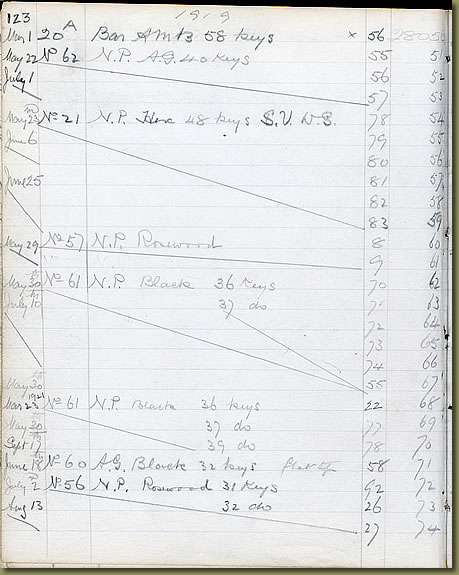 123 1919
Mar 1 20 A Bar AMB 58 keys x 56 28050
May 22 No 62 N.P. A.G. 40 keys 55 51
July 1 56 52
57 53
May 23 No 21 N.P. Hex 48 keys S.V. W.S. 78 54
June 6 79 55
80 56
June 25 81 57
82 58
83 59
May 29 No 57 N.P. Rosewood 8 60
9 61
May 30 No 61 N.P. Black 36 keys 70 62
July 10 37 do 71 63
72 64
73 65
74 66
May 30 55 67
Mar 23 1921 No 61 N.P. Black 36 keys 22 68
May 30 37 do 77 69
Sept 17 39 do 78 70
June 18 No 60 A.G. Black 32 keys flat top 58 71
July 2 No 56 N.P. Rosewood 31 keys 92 72
Aug 13 32 do 26 73
27 74